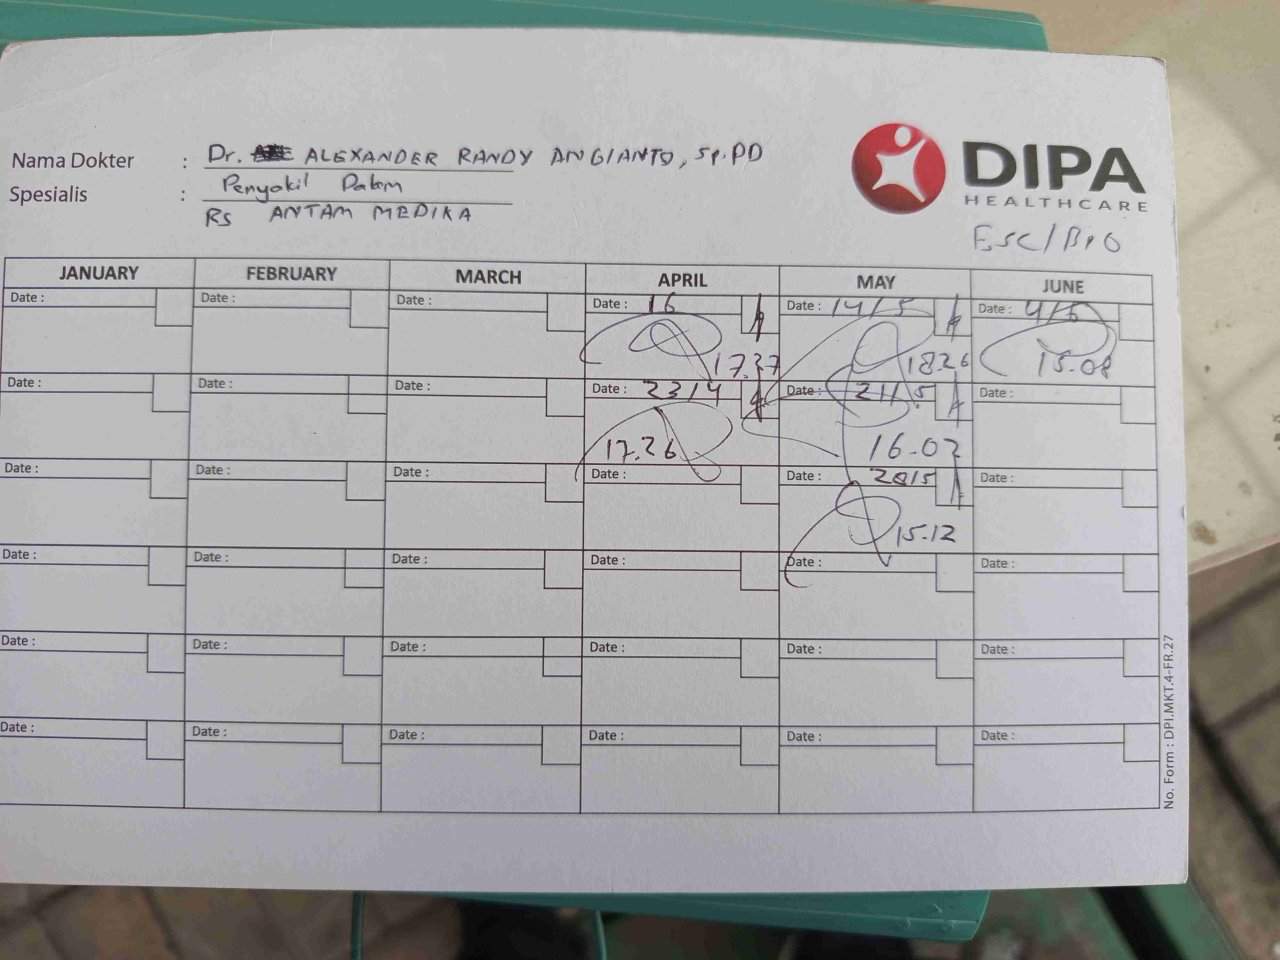 Nama Dokter : Dr. ALEXANDER RANDY ANGIANTO, Sp.PD
Spesialis : Penyakit Dalam
RS ANTAM MEDIKA
DIPA
HEALTHCARE
ESC/BPO
JANUARY FEBRUARY MARCH APRIL MAY JUNE
Date : Date : Date : Date : 16 Date : 14/5 Date : 4/6
17.37 18.26 15.08
Date : Date : Date : Date : 23/4 Date : 21/5 Date :
17.26 16.02
Date : Date : Date : Date : Date : 28/5 Date :
15.12
Date : Date : Date : Date : Date : Date :
Date : Date : Date : Date : Date : Date :
Date : Date : Date : Date : Date : Date :
No. Form : DPI.MKT.4-FR.27